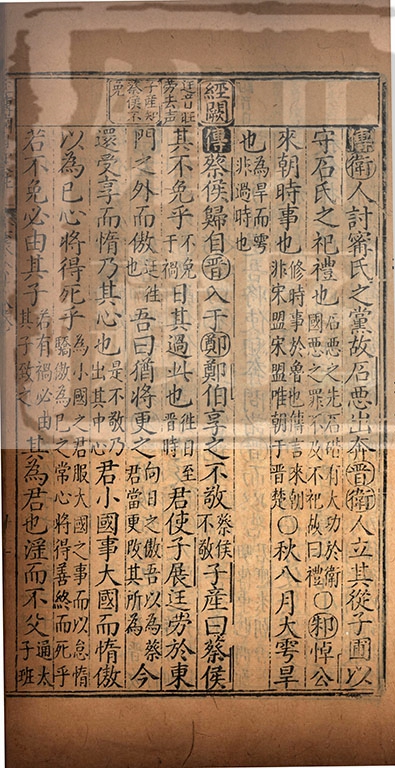 傳衛人討甯氏之黨故石惡出奔晉衛人立其從子圃以
守石氏之祀禮也石惡之先石碏有大功於衛國惡之罪不及不祀故曰禮○邾悼公
來朝時事也修時事於魯也傳言來朝非宋盟宋盟唯朝于晉楚○秋八月大雩旱
也為旱而雩非過時也
經闕
傳蔡侯歸自晉入于鄭鄭伯享之不敬蔡侯不敬子產曰蔡侯
迋音旺
勞去聲
子產知
蔡侯不
免
其不免乎不免于禍日其過此也往日至晉時君使子展迋勞於東
門之外而傲迋往也吾曰猶將更之向日之傲吾以為蔡君當更改其所為今
還受享而惰乃其心也是不敬乃出其中心君小國事大國而惰傲
以為己心將得死乎為小國之君服大國之事而以怠惰驕傲為己之常心將得善終而死乎
若不免必由其子若有禍必由其子致之其為君也淫而不父通太子班